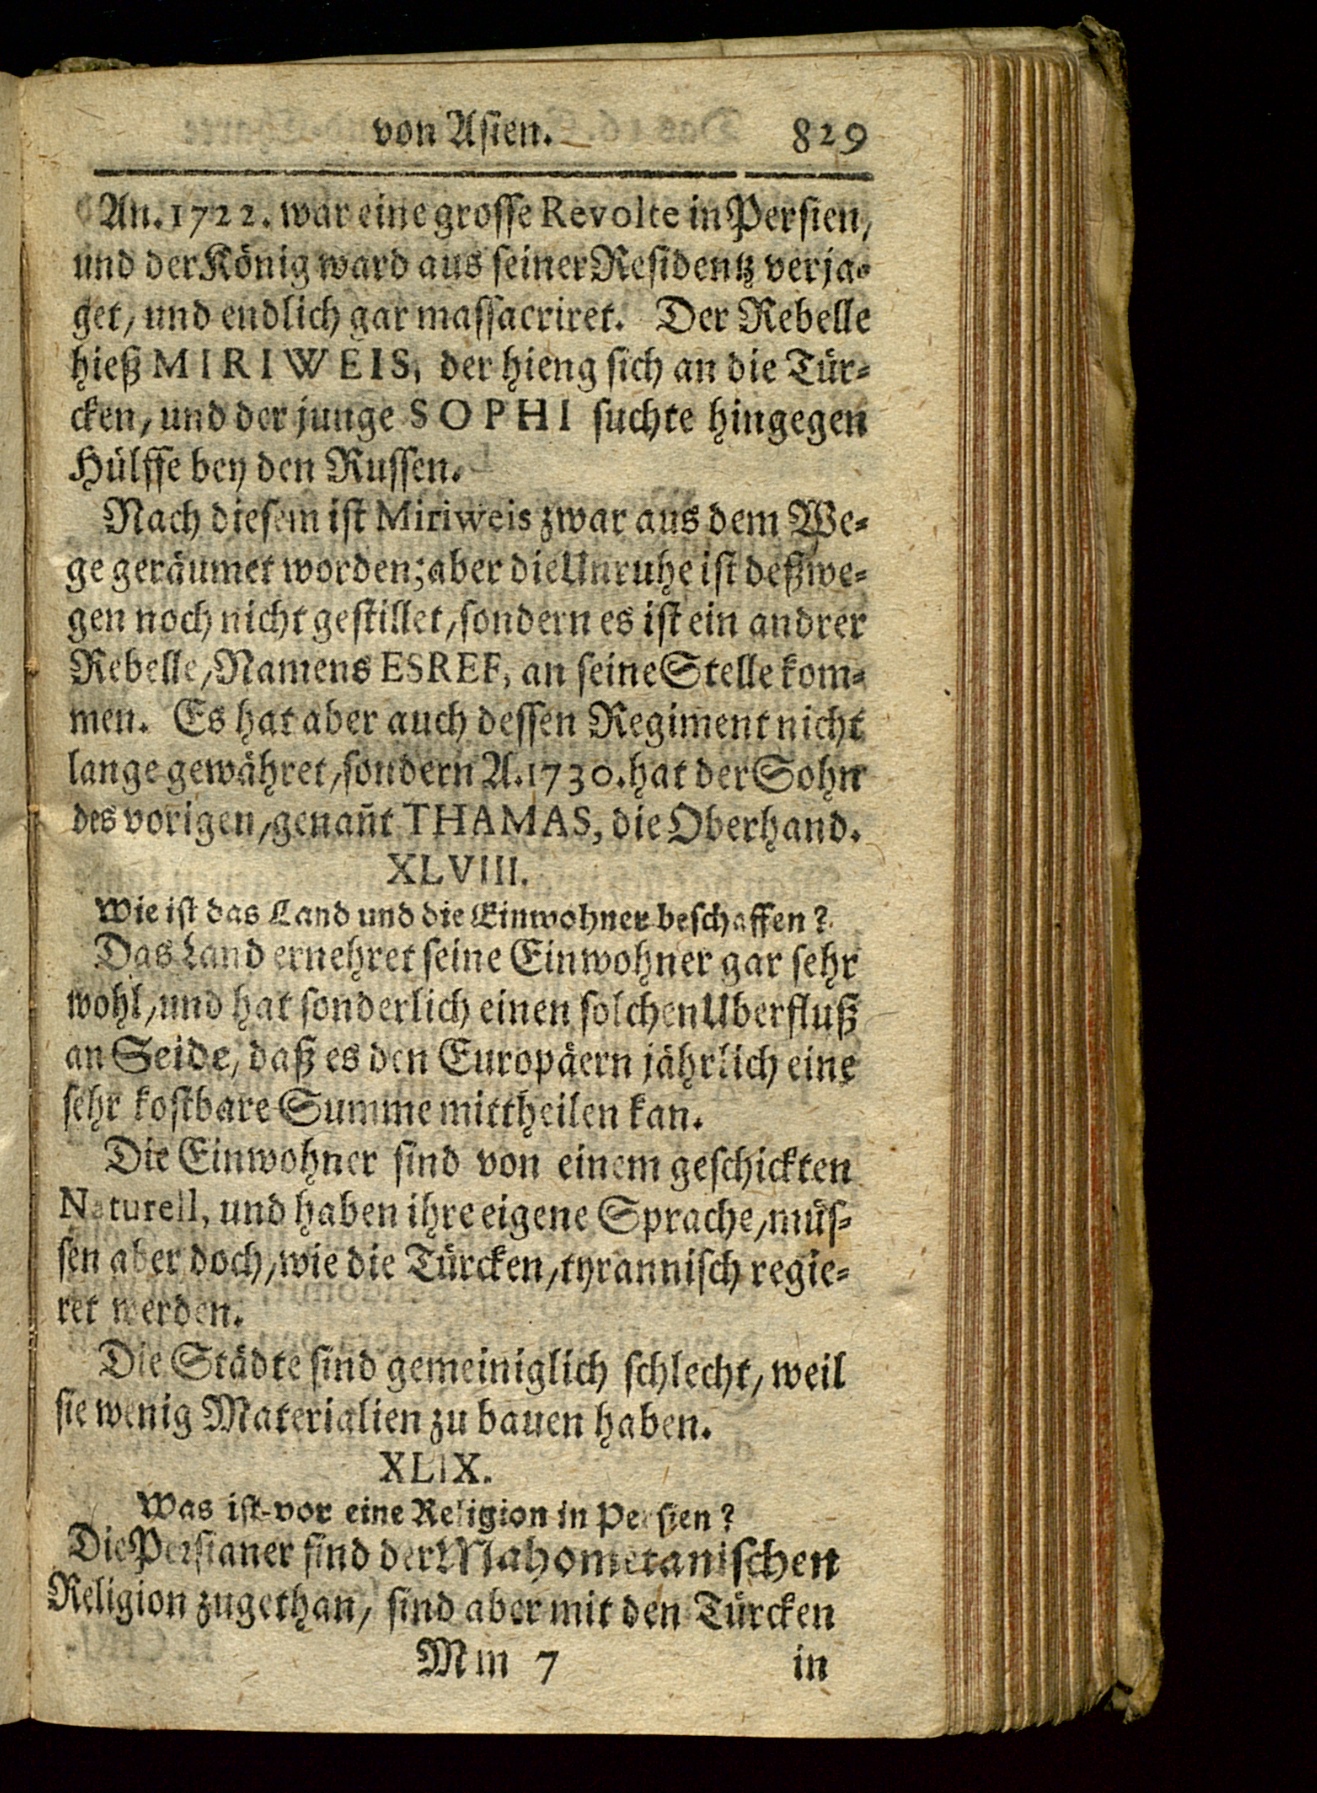 von Asien. 829
An. 1722. war eine grosse Revolte in Persien,
und der König ward aus seiner Residentz verja-
get, und endlich gar massacriret. Der Rebelle
hieß MIRIWEIS, der hieng sich an die Tür-
cken, und der junge SOPHI suchte hingegen
Hülffe bey den Russen.
Nach diesem ist Miriweis zwar aus dem We-
ge geräumet worden; aber die Unruhe ist deßwe-
gen noch nicht gestillet, sondern es ist ein andrer
Rebelle, Namens ESREF, an seine Stelle kom-
men. Es hat aber auch dessen Regiment nicht
lange gewähret, sondern A. 1730. hat der Sohn
des vorigen, genañt THAMAS, die Oberhand.
XLVIII.
Wie ist das Land und die Einwohner beschaffen?
Das Land ernehret seine Einwohner gar sehr
wohl, und hat sonderlich einen solchen Uberfluß
an Seide, daß es den Europäern jährlich eine
sehr kostbare Summe mittheilen kan.
Die Einwohner sind von einem geschickten
Naturell, und haben ihre eigene Sprache, müs-
sen aber doch, wie die Türcken, tyrannisch regie-
ret werden.
Die Städte sind gemeiniglich schlecht, weil
sie wenig Materialien zu bauen haben.
XLIX.
Was ist vor eine Religion in Persien?
Die Persianer sind der Mahometanischen
Religion zugethan, sind aber mit den Türcken
Mm 7 in